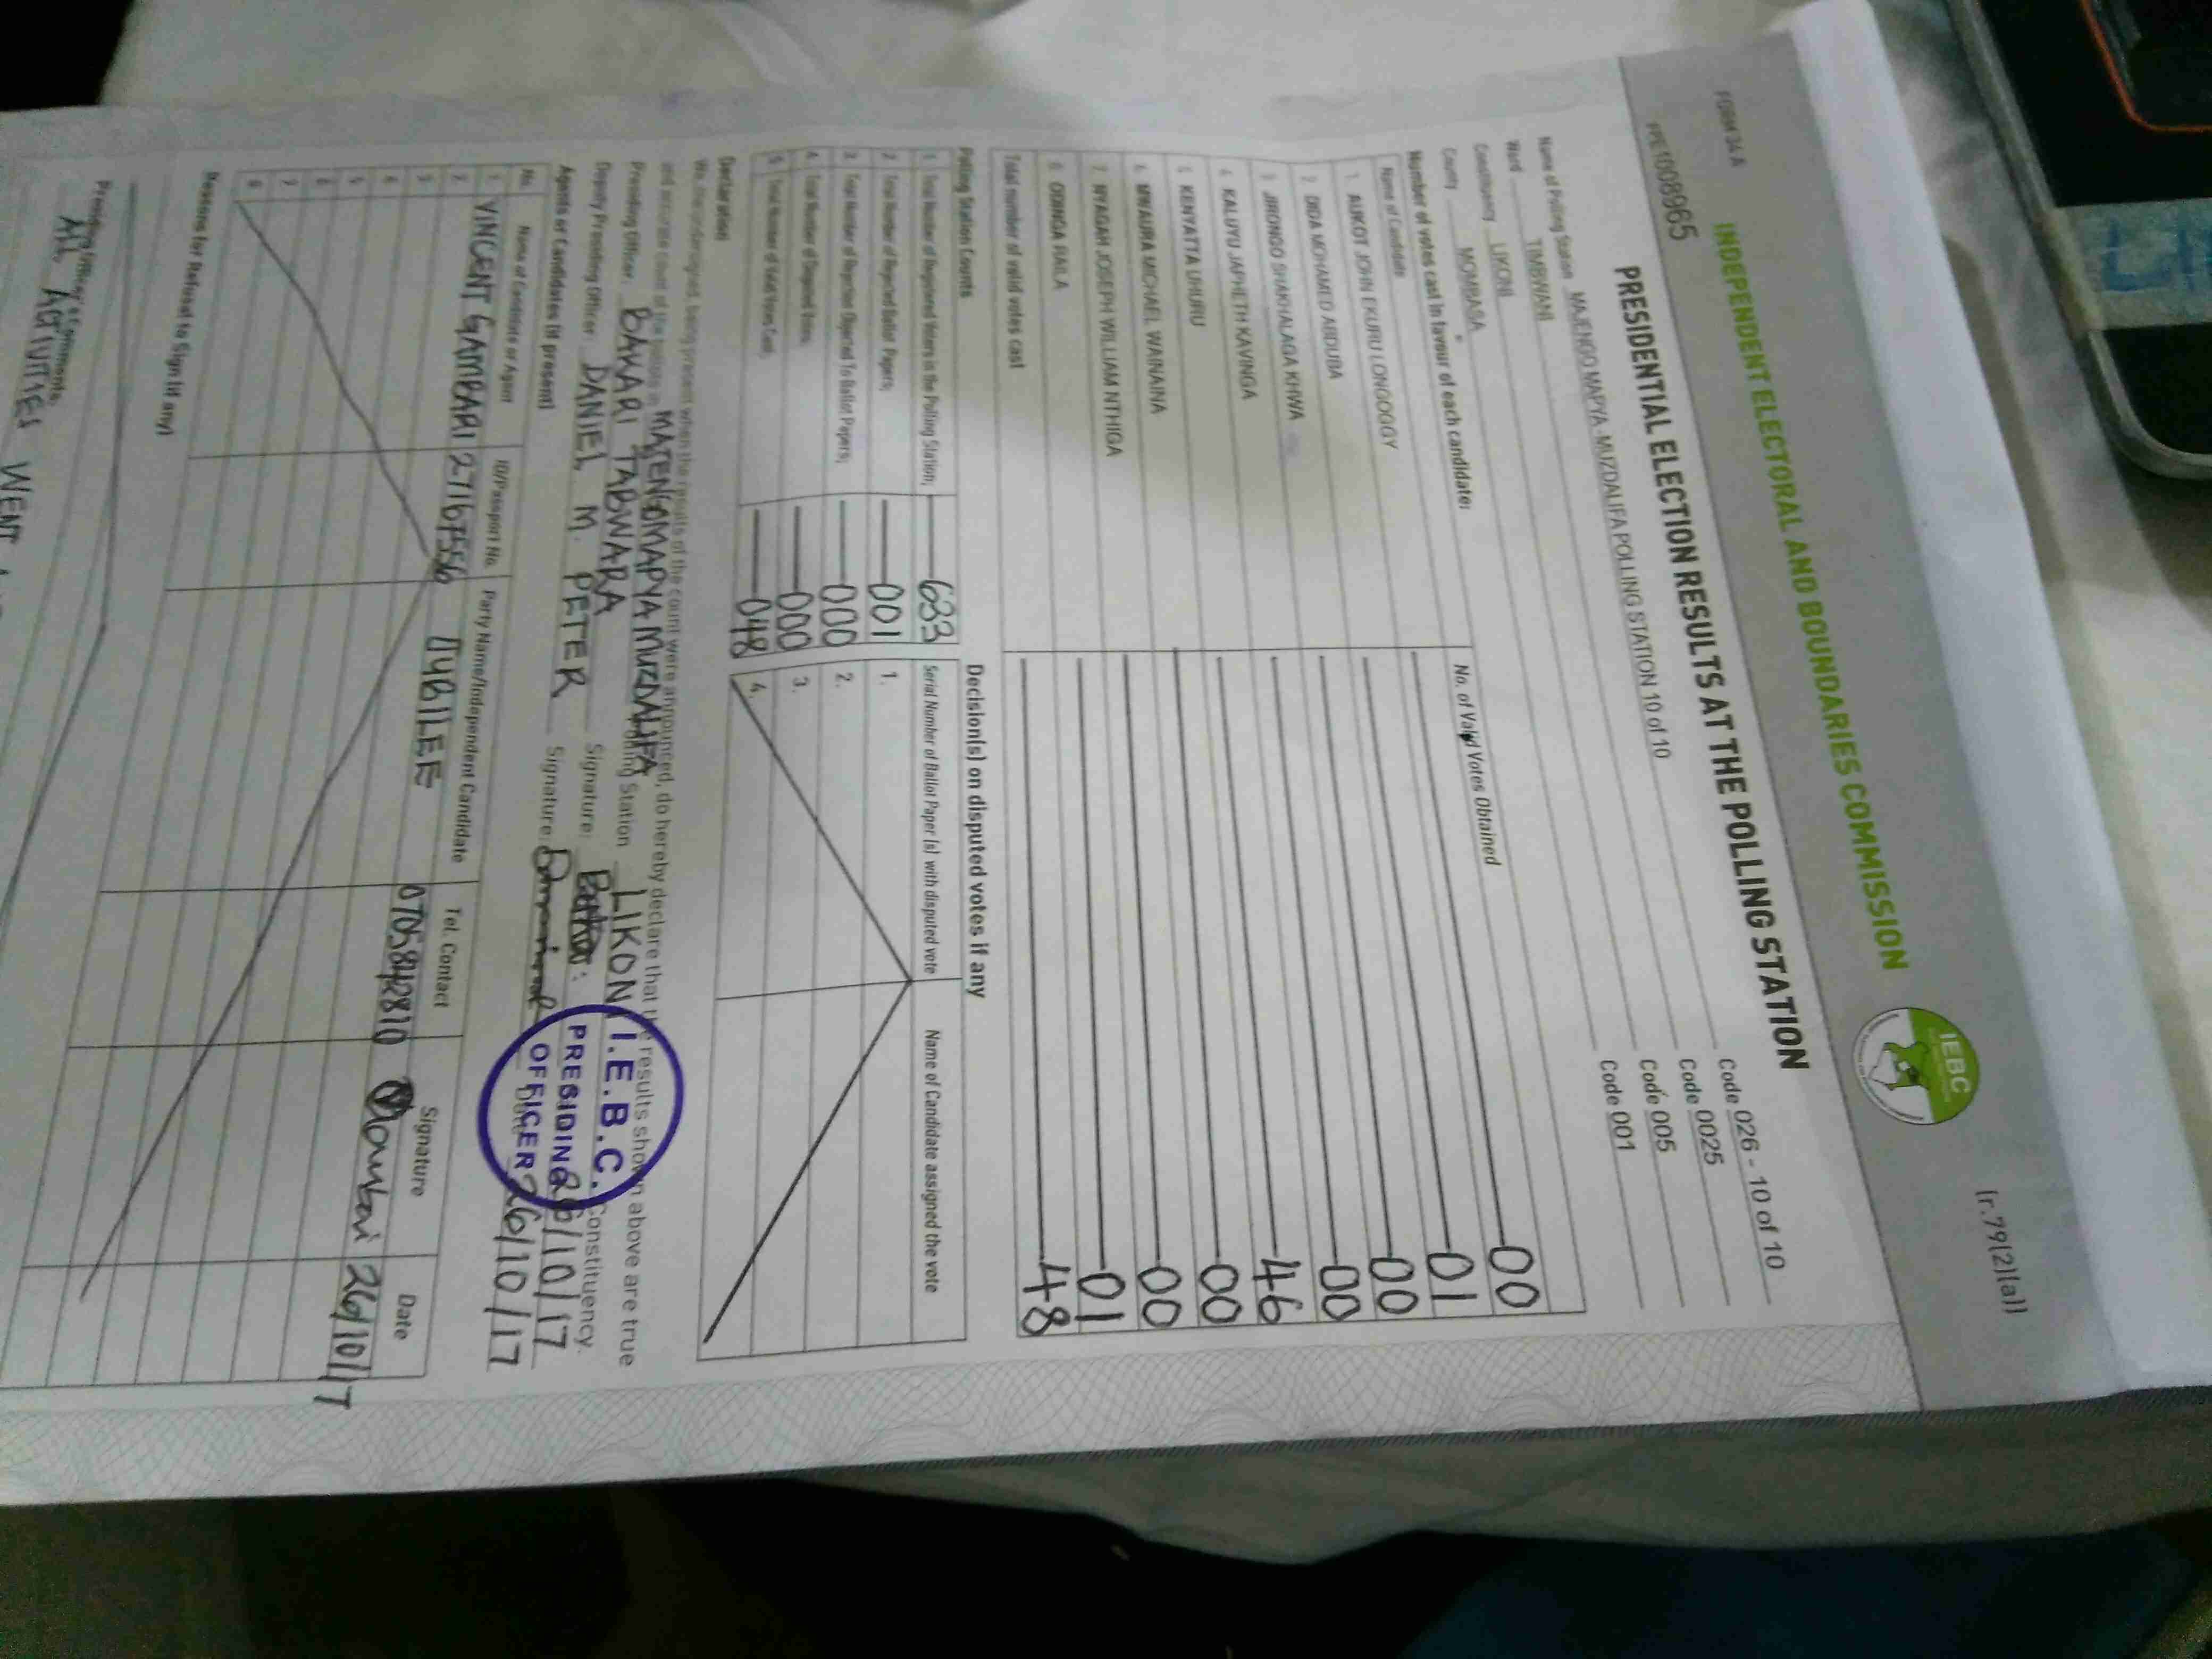 FORM 34 A
[r.79(2)(a)]
INDEPENDENT ELECTORAL AND BOUNDARIES COMMISSION
IEBC
PRE1008965
PRESIDENTIAL ELECTION RESULTS AT THE POLLING STATION
Name of Polling Station MAJENGO MAPYA -MUZDALIFA POLLING STATION 10 of 10 Code 026 - 10 of 10
Ward TIMBWANI Code 0025
Constituency LIKONI Code 005
County MOMBASA Code 001
Number of votes cast in favour of each candidate:
Name of Candidate No. of Valid Votes Obtained
1. AUKOT JOHN EKURU LONGOGGY 00
2. DIDA MOHAMED ABDUBA 01
3. JIRONGO SHAKHALAGA KHWA 00
4. KALUYU JAPHETH KAVINGA 00
5. KENYATTA UHURU 46
6. MWAURA MICHAEL WAINAINA 00
7. NYAGAH JOSEPH WILLIAM NTHIGA 00
8. ODINGA RAILA 01
Total number of valid votes cast 48
Polling Station Counts Decision(s) on disputed votes if any
1. Total Number of Registered Voters in the Polling Station; 633 Serial Number of Ballot Paper (s) with disputed vote Name of Candidate assigned the vote
2. Total Number of Rejected Ballot Papers; 001 1.
3. Total Number of Rejection Objected To Ballot Papers; 000 2.
4. Total Number of Disputed Votes; 000 3.
5. Total Number of Valid Votes Cast; 048 4.
Declaration
We, the undersigned, being present when the results of the count were announced, do hereby declare that the results shown above are true
and accurate count of the ballots in MAJENGO MAPYA MUZDALIFA Polling Station LIKONI Constituency.
Presiding Officer: BAKARI TABWARA Signature: 26/10/17
Deputy Presiding Officer: DANIEL M. PETER Signature: Date 26/10/17
I.E.B.C.
PRESIDING
OFFICER
Agents of Candidates (if present)
No. Name of Candidate or Agent ID/Passport No. Party Name/Independent Candidate Tel. Contact Signature Date
1. VINCENT GAMBARI 27167556 JUBILEE 0705842810 26/10/17
2.
3.
4.
5.
6.
7.
8.
Reasons for Refusal to Sign (if any)
Presiding Officer's Comments
ALL ACTIVITIES WENT